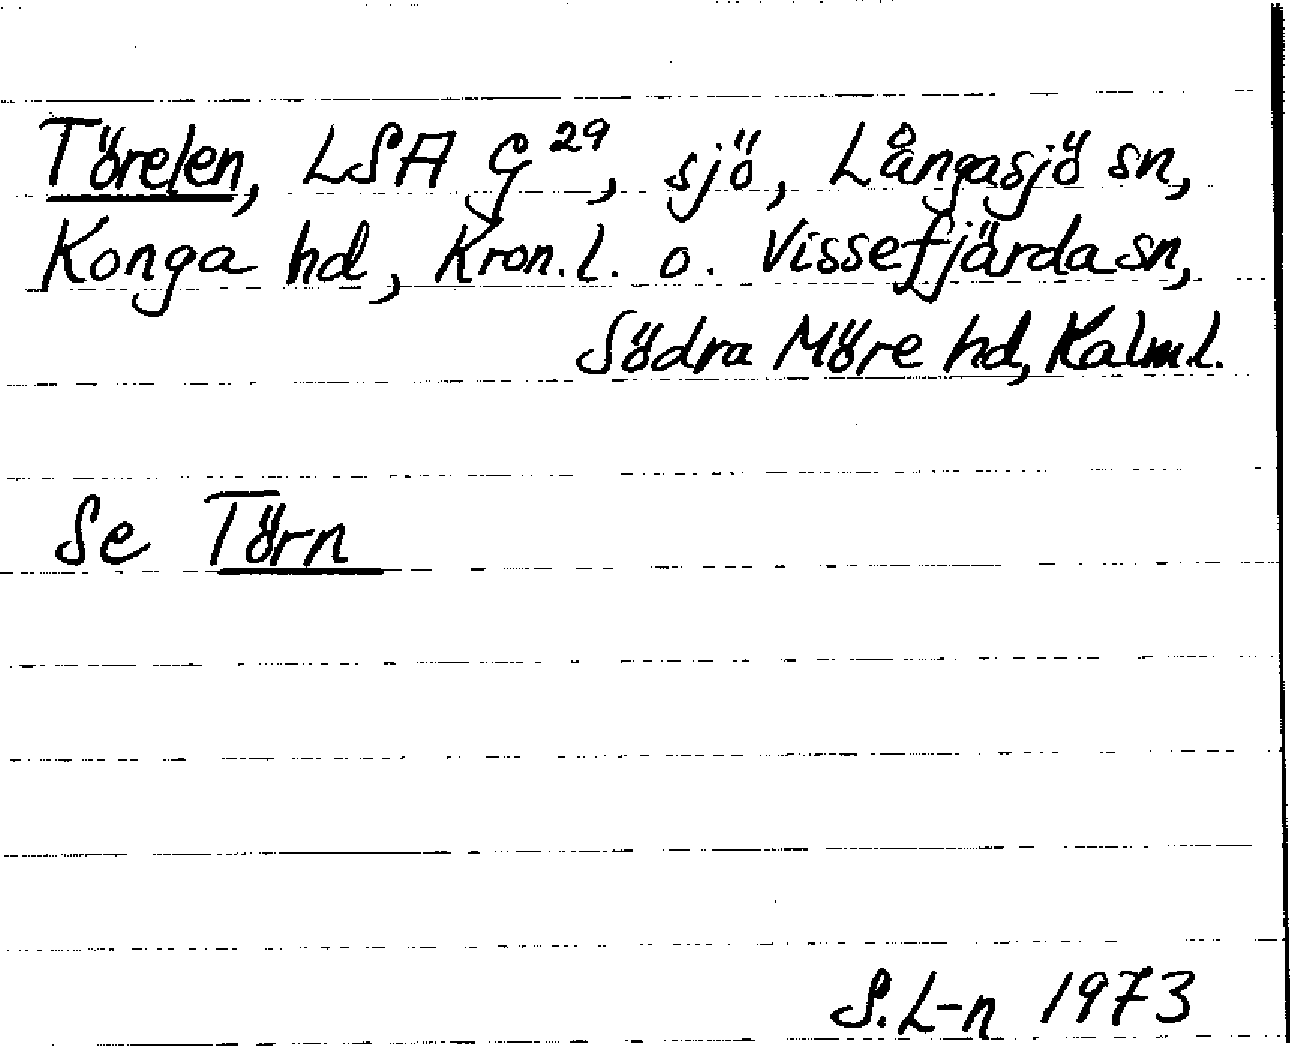 Törelen, LSA G 29, sjö, Långasjö sn,
Konga hd, Kron.l. o. Vissefjärda sn,
Södra Möre hd, Kalm.l.
Se Törn
S.L-n 1973